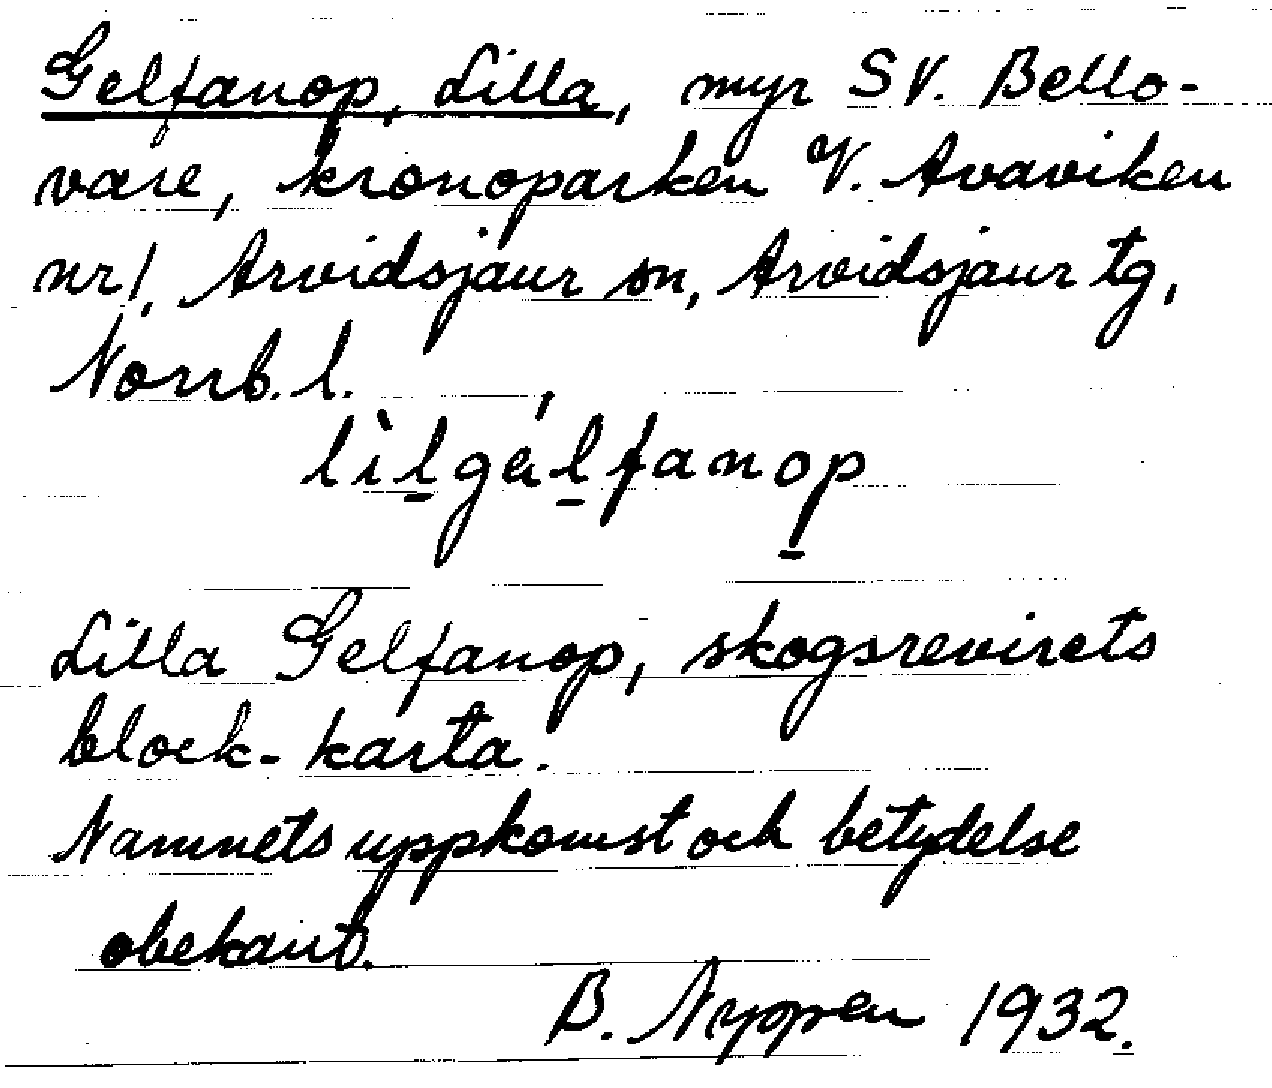 Gelfanop, Lilla, myr SV. Bello-
vare, kronoparken V. Avaviken
nr 1, Arvidsjaur sn, Arvidsjaur tg,
Norrb. l.
lìlgálfanop
Lilla Gelfanop, skogsrevirets
block-karta.
Namnets uppkomst och betydelse
obekant.
B. Nyppen 1932.